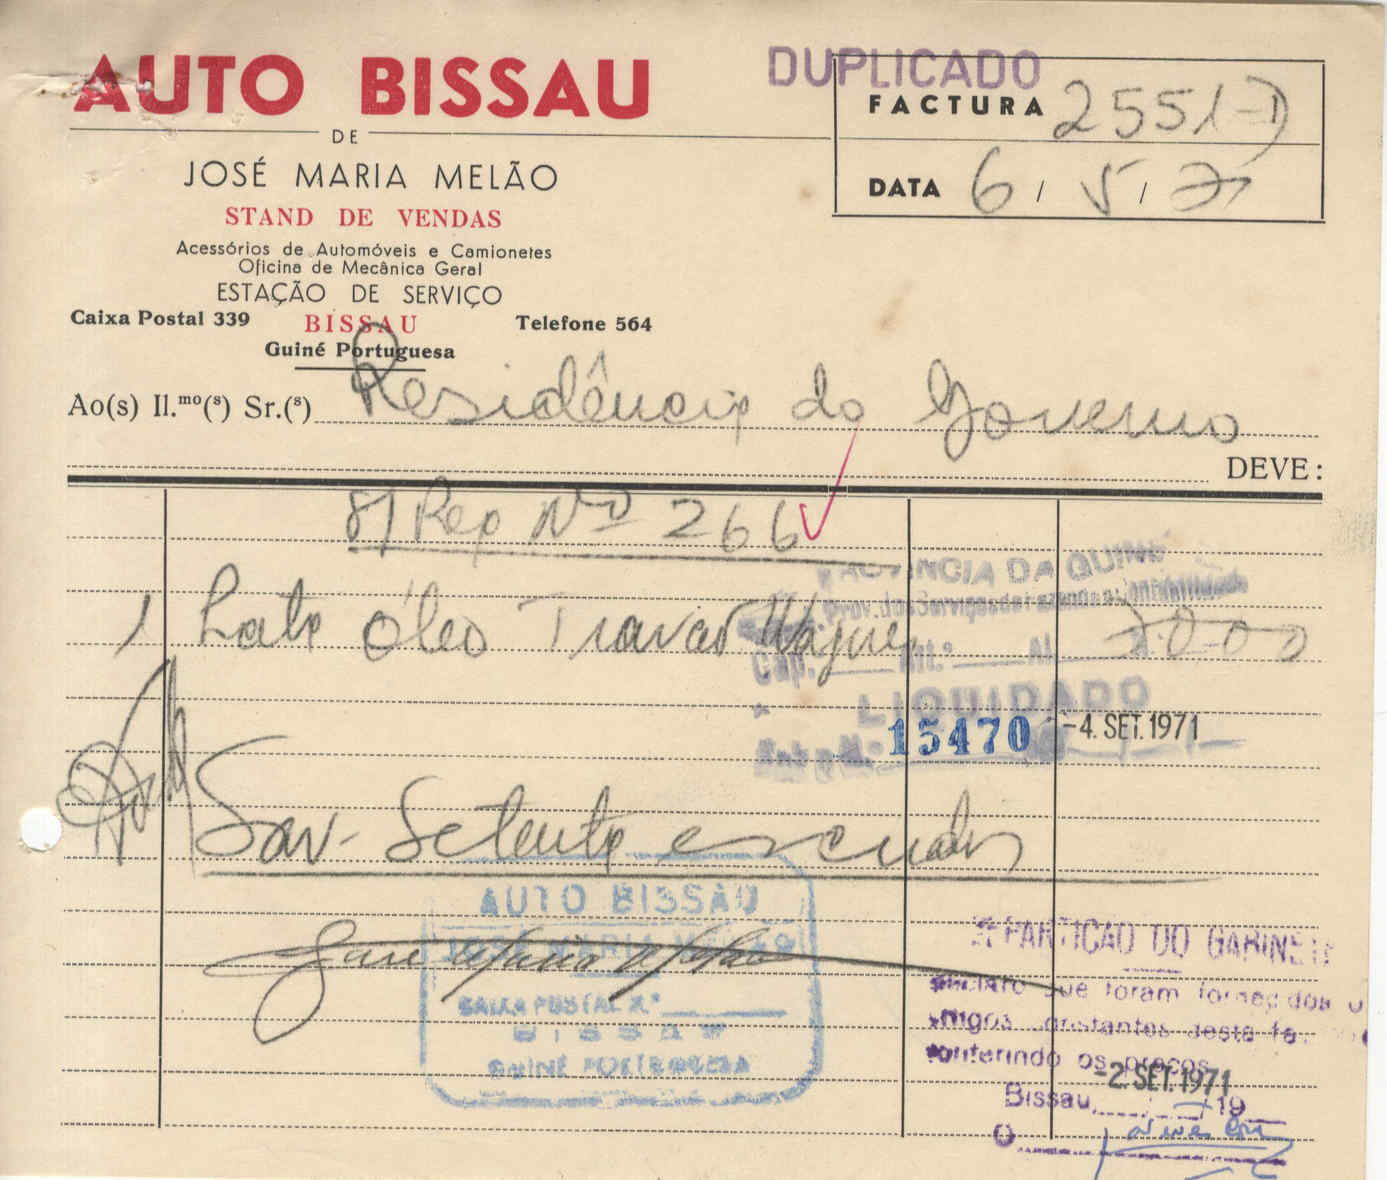 DUPLICADO
AUTO BISSAU
FACTURA 2551-D
DE
JOSÉ MARIA MELÃO
DATA 6 / 5 / 71
STAND DE VENDAS
Acessórios de Automóveis e Camionetes
Oficina de Mecânica Geral
ESTAÇÃO DE SERVIÇO
Caixa Postal 339 BISSAU Telefone 564
Guiné Portuguesa
Ao(s) Il.mo(s) Sr.(s) Residência do Governo
DEVE:
Req Nº 266
PROVINCIA DA GUINÉ
1 Lata Óleo Travões 70 00
Cap. Art.º Al.
LIQUIDADO
15470 -4. SET. 1971
São- Setenta escudos
AUTO BISSAU
JOSÉ MARIA MELÃO
José Maria Melão
REPARTIÇÃO DO GABINETE
CAIXA POSTAL N.º
Declaro que foram fornecidos os
artigos constantes desta
BISSAU
conferindo os preços
GUINÉ PORTUGUESA
-2. SET. 1971
Bissau, / 19
O